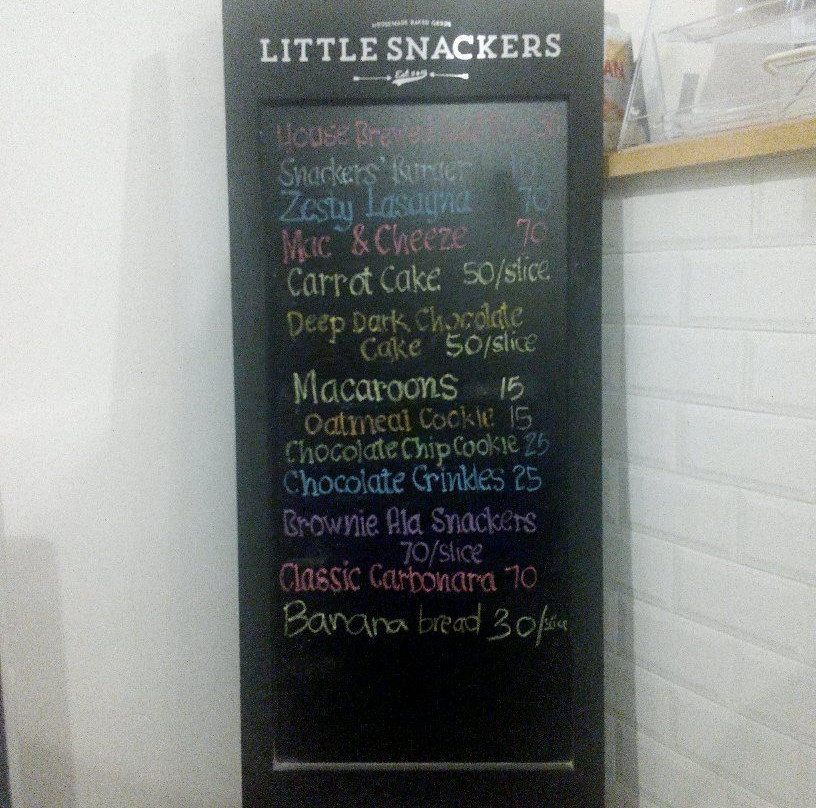 HOMEMADE BAKED GOODS
LITTLE SNACKERS
House Brewed Iced Tea 30
Snackers' Burger
Zesty Lasagna 70
Mac & Cheeze 70
Carrot Cake 50/slice
Deep Dark Chocolate
Cake 50/slice
Macaroons 15
Oatmeal Cookie 15
Chocolate Chip Cookie 25
Chocolate Crinkles 25
Brownie Ala Snackers
70/slice
Classic Carbonara 70
Banana bread 30/slice